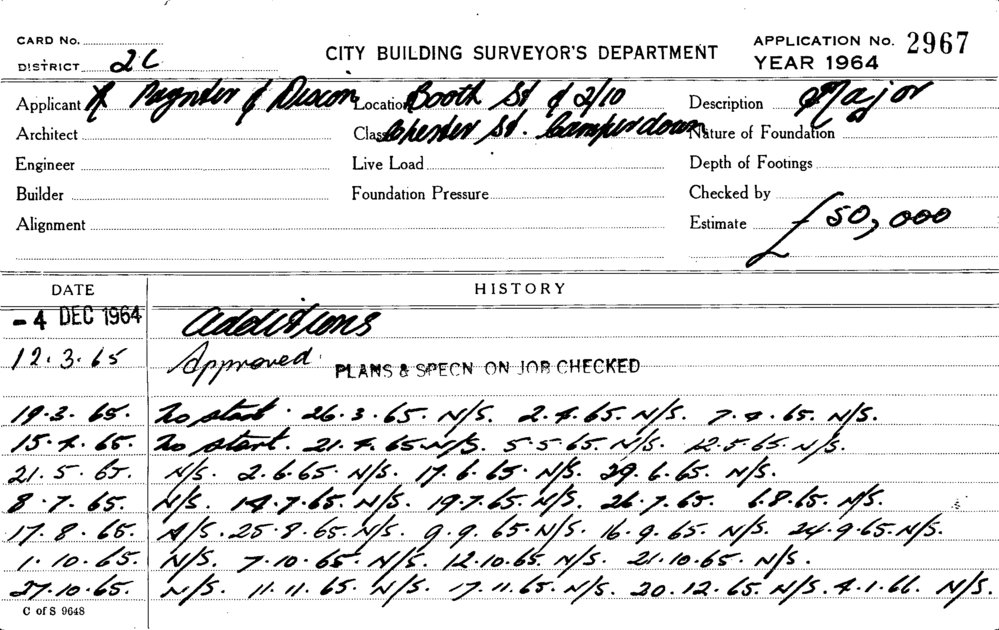 CARD No.
DISTRICT 2C
CITY BUILDING SURVEYOR'S DEPARTMENT
APPLICATION No. 2967
YEAR 1964
Applicant A Paynter & Dixon Location Booth St & 2/10 Description Major
Architect Class Chester St. Camperdown Nature of Foundation
Engineer Live Load Depth of Footings
Builder Foundation Pressure Checked by
Alignment Estimate £50,000
DATE HISTORY
- 4 DEC 1964 Additions
12.3.65 Approved PLANS & SPECN ON JOB CHECKED
19.3.65. No start. 26.3.65. N/S. 2.4.65. N/S. 7.4.65. N/S.
15.4.65. No start. 21.4.65. N/S. 5.5.65. N/S. 12.5.65. N/S.
21.5.65. N/S. 2.6.65. N/S. 17.6.65. N/S. 29.6.65. N/S.
8.7.65. N/S. 14.7.65. N/S. 19.7.65. N/S. 26.7.65. 6.8.65. N/S.
17.8.65. N/S. 25.8.65. N/S. 9.9.65. N/S. 16.9.65. N/S. 24.9.65. N/S.
1.10.65. N/S. 7.10.65. N/S. 12.10.65. N/S. 21.10.65. N/S.
27.10.65. N/S. 11.11.65. N/S. 17.11.65. N/S. 20.12.65. N/S. 4.1.66. N/S.
C of S 9648